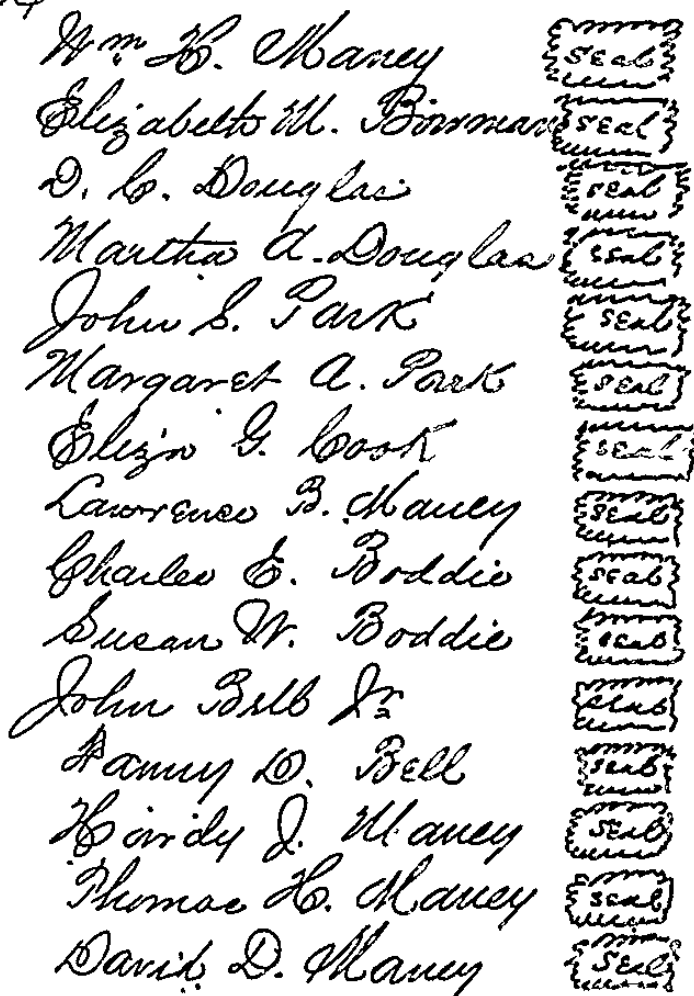 Wm H. Maney SEAL
Elizabeth M. Bowman SEAL
D. C. Douglas SEAL
Martha A. Douglas SEAL
John S. Park SEAL
Margaret A. Park SEAL
Eliz'n G. Cook SEAL
Lawrence B. Maney SEAL
Charles E. Boddie SEAL
Susan W. Boddie SEAL
John Bell Jr SEAL
Fanny D. Bell SEAL
J. Maney SEAL
Thomas H. Maney SEAL
David D. Maney SEAL